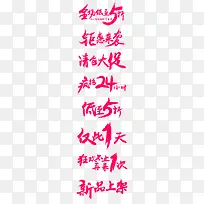 全场低至5折
钜惠来袭
清仓大促
疯抢24小时
低至5折
仅此1天
狂欢不止 再来1次
新品上架